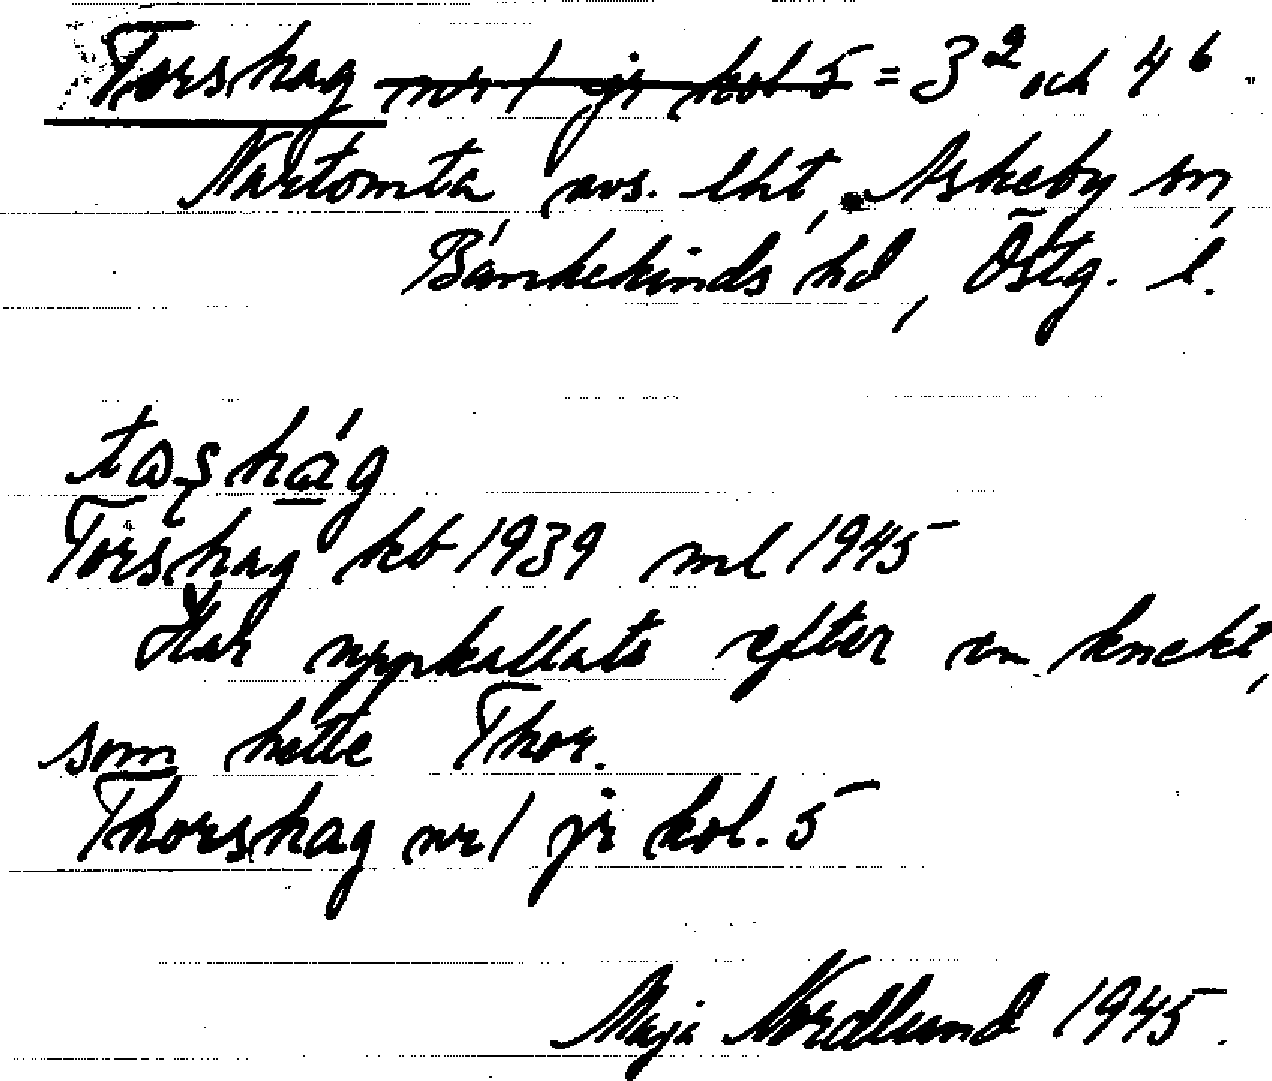 Torshag nr 1 jr kol 5 = 3² och 4⁶.
Nartomta avs. lht, Askeby sn,
Bankekinds hd, Östg. l.
Torshag kb 1939 ml 1945
Har uppkallats efter en knekt,
som hette Thor.
Thorshag nr 1 jr kol. 5
Maja Nordlund 1945.